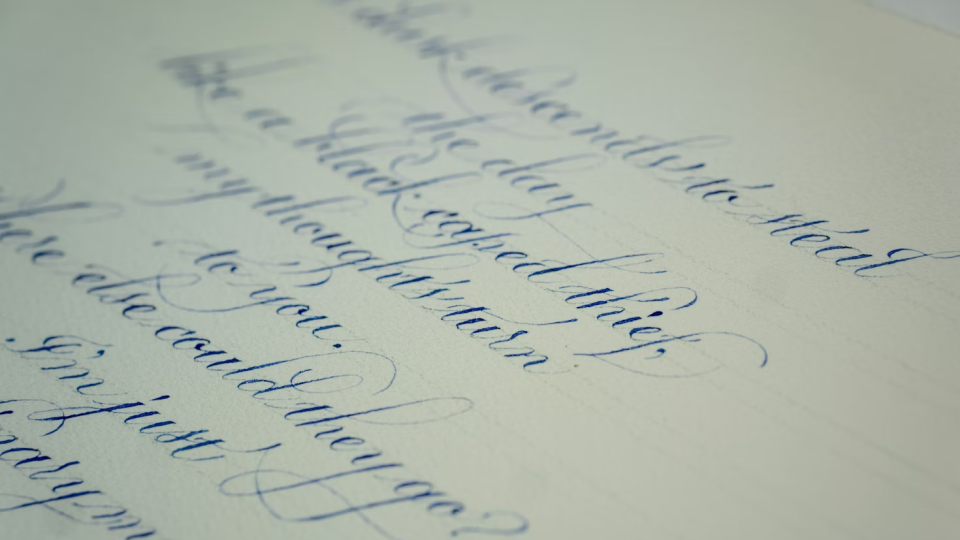 descends to steal
the day
like a black caped thief,
my thoughts turn
to you.
here else could they go?
I'm just